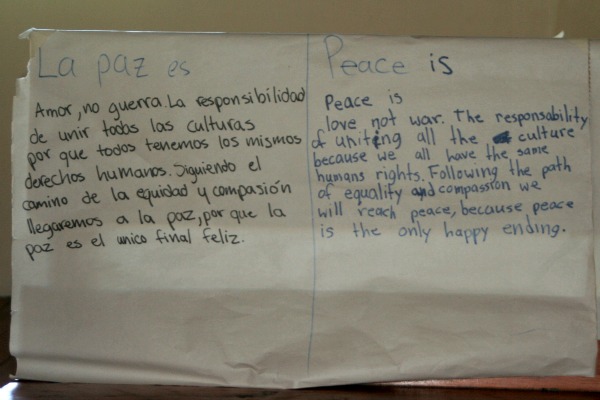 La paz es
Amor, no guerra. La responsibilidad
de unir todas las culturas
por que todos tenemos los mismos
derechos humanos. Siguiendo el
camino de la equidad y compasión
llegaremos a la paz, por que la
paz es el unico final feliz.
Peace is
Peace is
love not war. The responsability
of uniting all the culture
because we all have the same
humans rights. Following the path
of equality and compassion we
will reach peace, because peace
is the only happy ending.